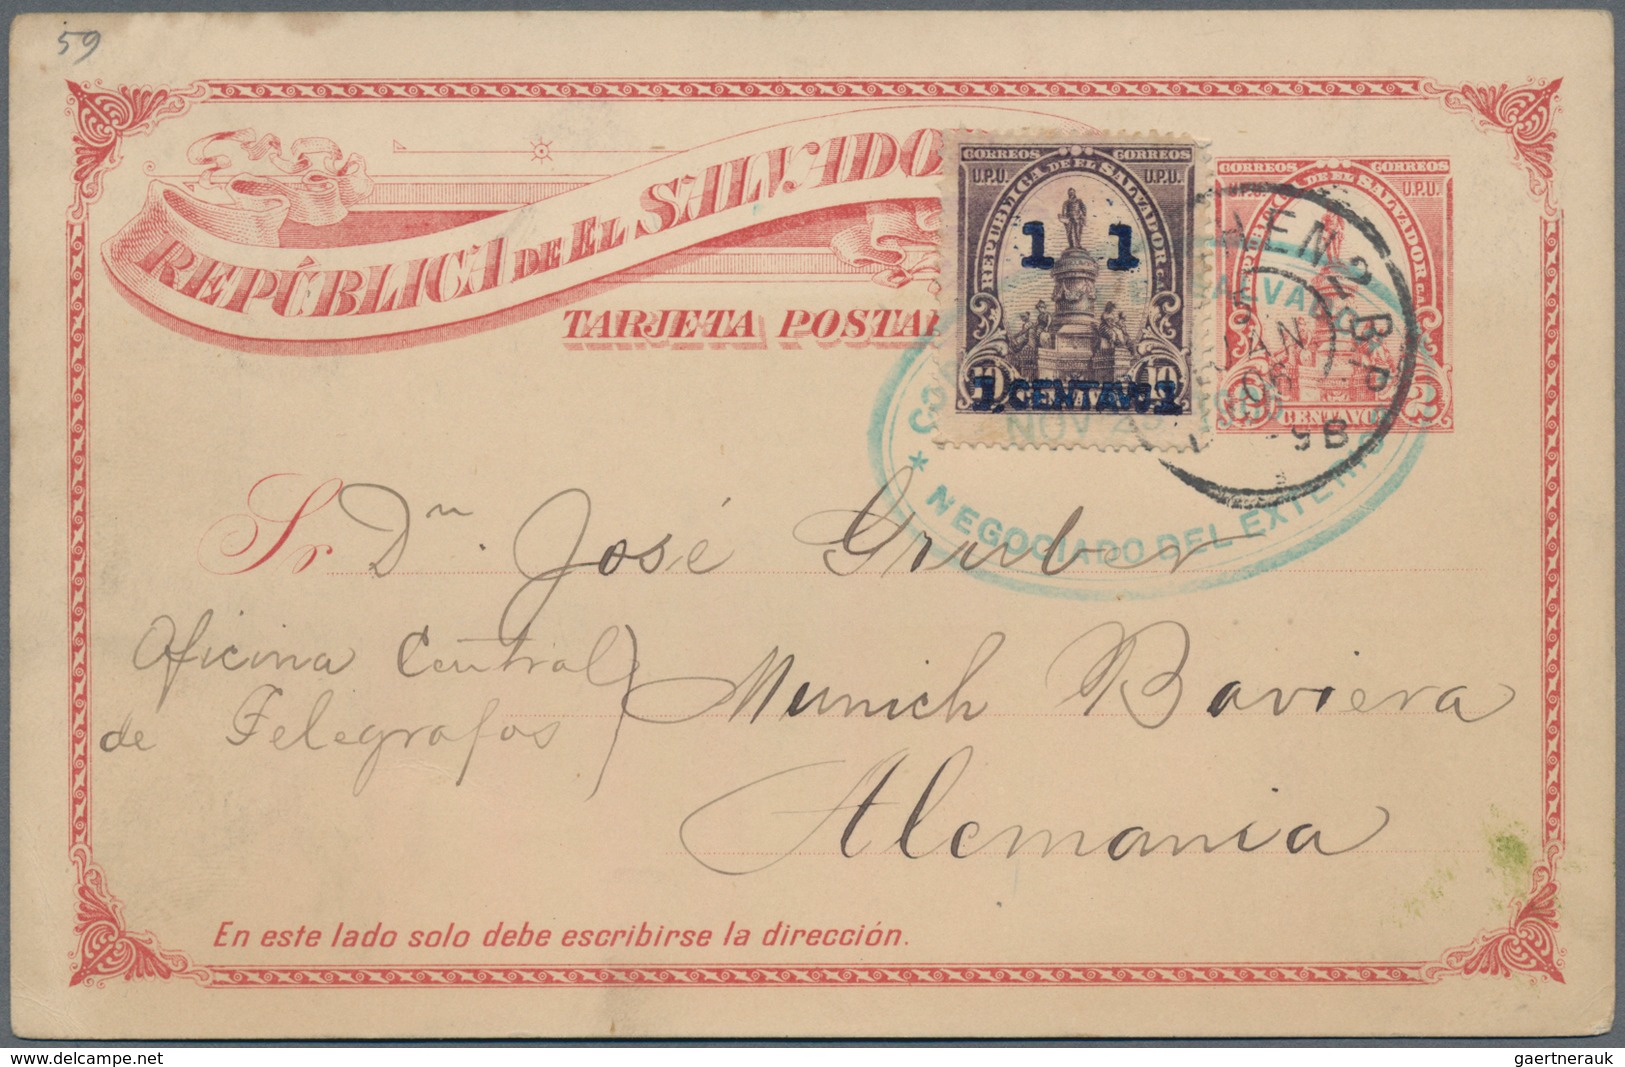 59
REPÚBLICA DE EL SALVADO
TARJETA POSTAL
CORREOS CORREOS
U.P.U. U.P.U.
REPUBLICA DE EL SALVADOR C.A.
1 1
1 CENTAVO 1
CORREOS CORREOS
DE EL SALVADOR C.A.
U.P.U.
2
CENTAVOS
HEN 2 B.P.
5
JAN
06
NOV 1905
★ NEGOCIADO DEL EXTERIOR
Sr Dn. José Gruber
Oficina Central
de Telegrafos
Munich Baviera
Alemania
En este lado solo debe escribirse la dirección.
www.delcampe.net
gaertnerauk